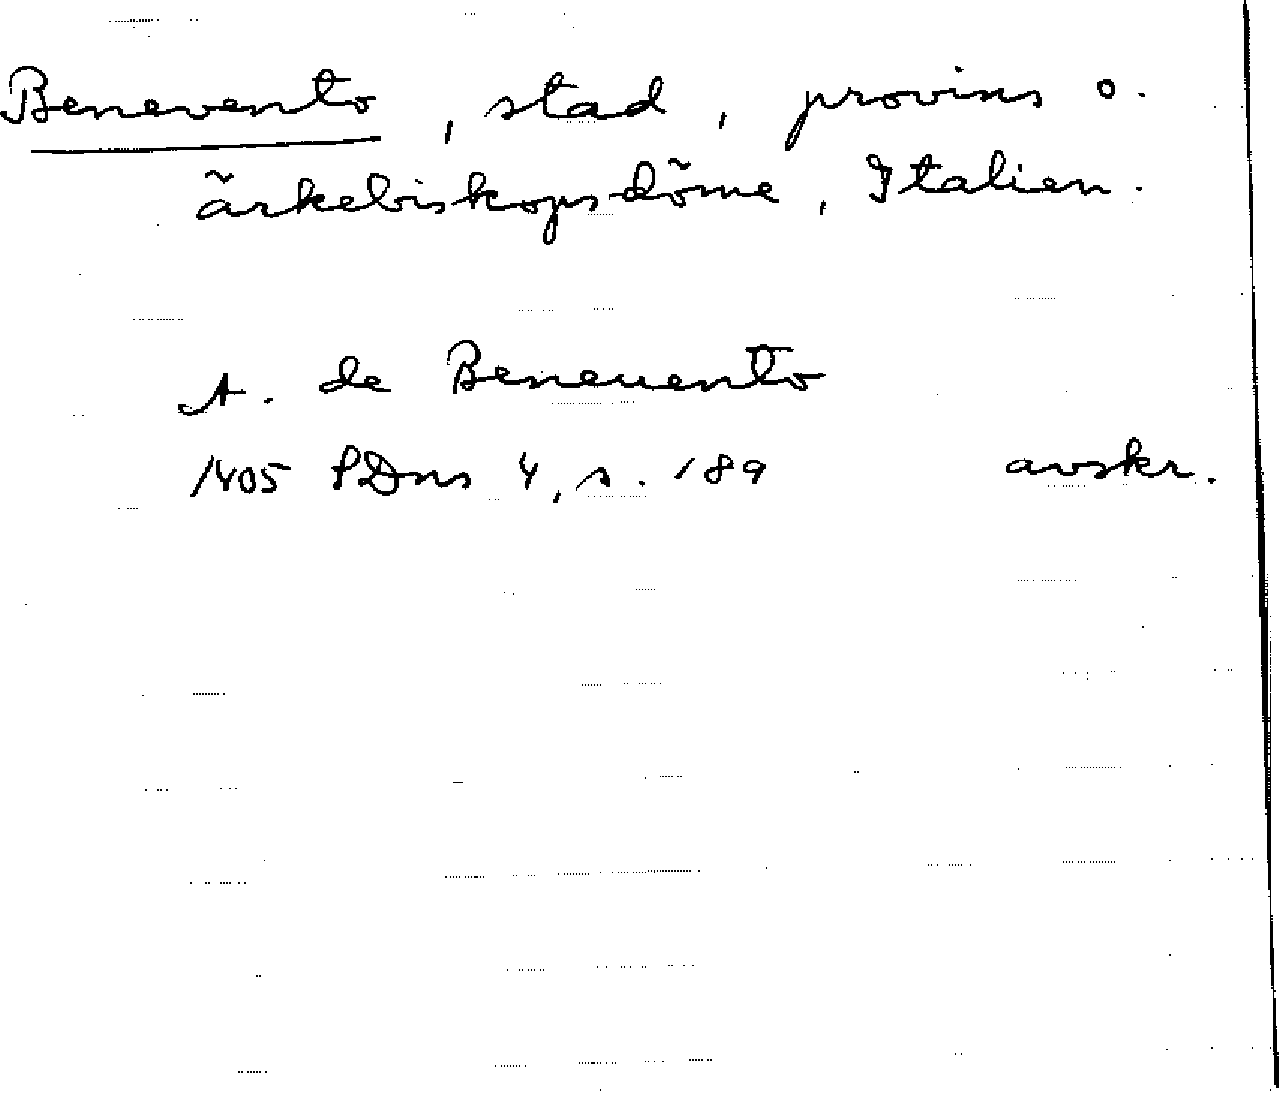 Benevento, stad, provins o.
ärkebiskopsdöme, Italien.
A. de Beneuento
1405 PDns 4, s. 189 avskr.